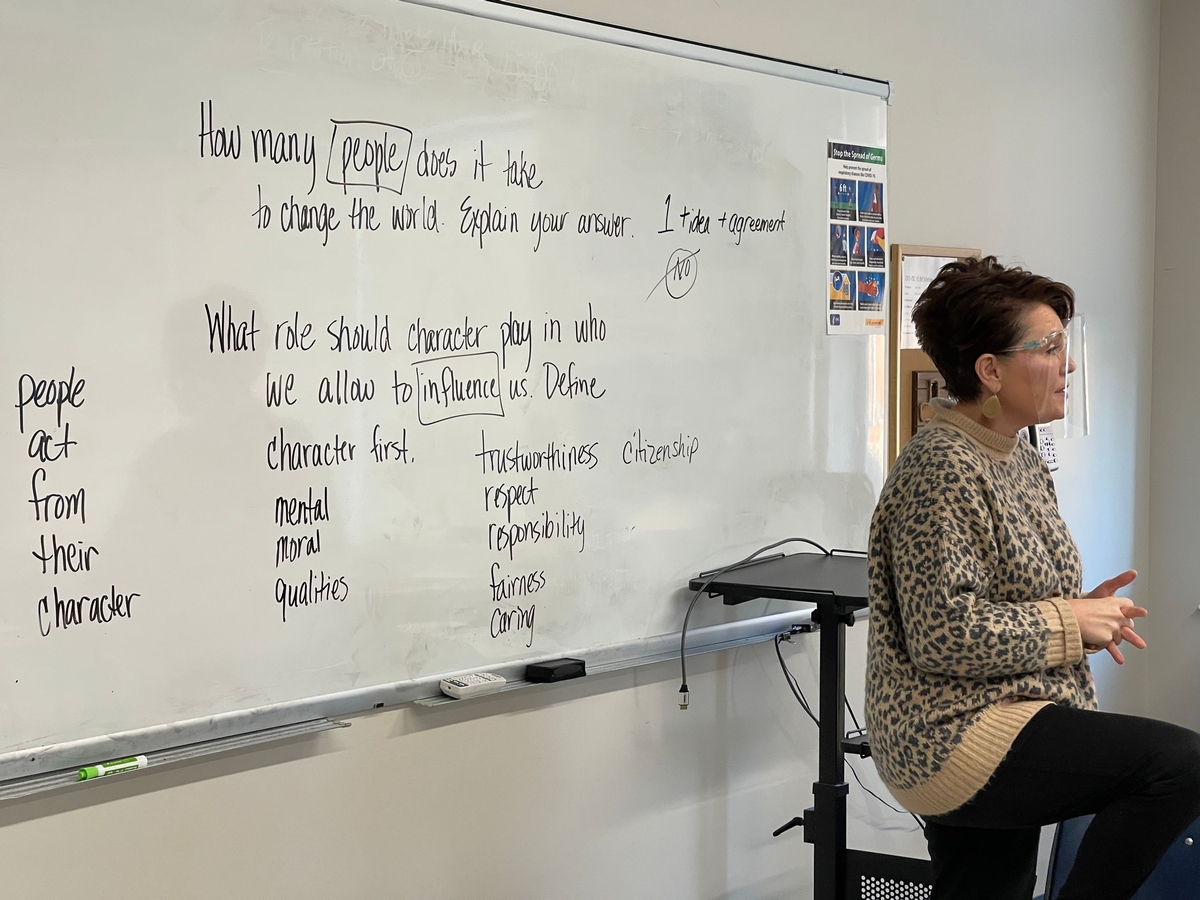 How many people does it take
to change the world. Explain your answer. 1 + idea + agreement
NO
What role should character play in who
we allow to influence us. Define
character first.
people
act
from
their
character
mental
moral
qualities
trustworthiness citizenship
respect
responsibility
fairness
caring
Stop the Spread of Germs
Help prevent the spread of
respiratory diseases like COVID-19.
6 ft